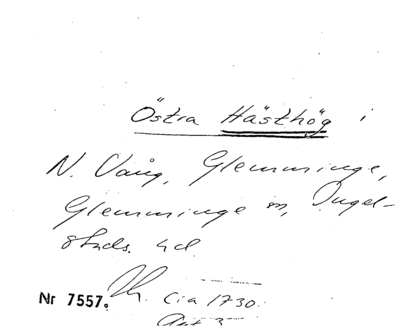 Östra Hästhög i
N. Vång, Glemminge,
Glemminge sn, Ingel-
stads hd.
Nr 7557. Th. c:a 1730.
Akt 3